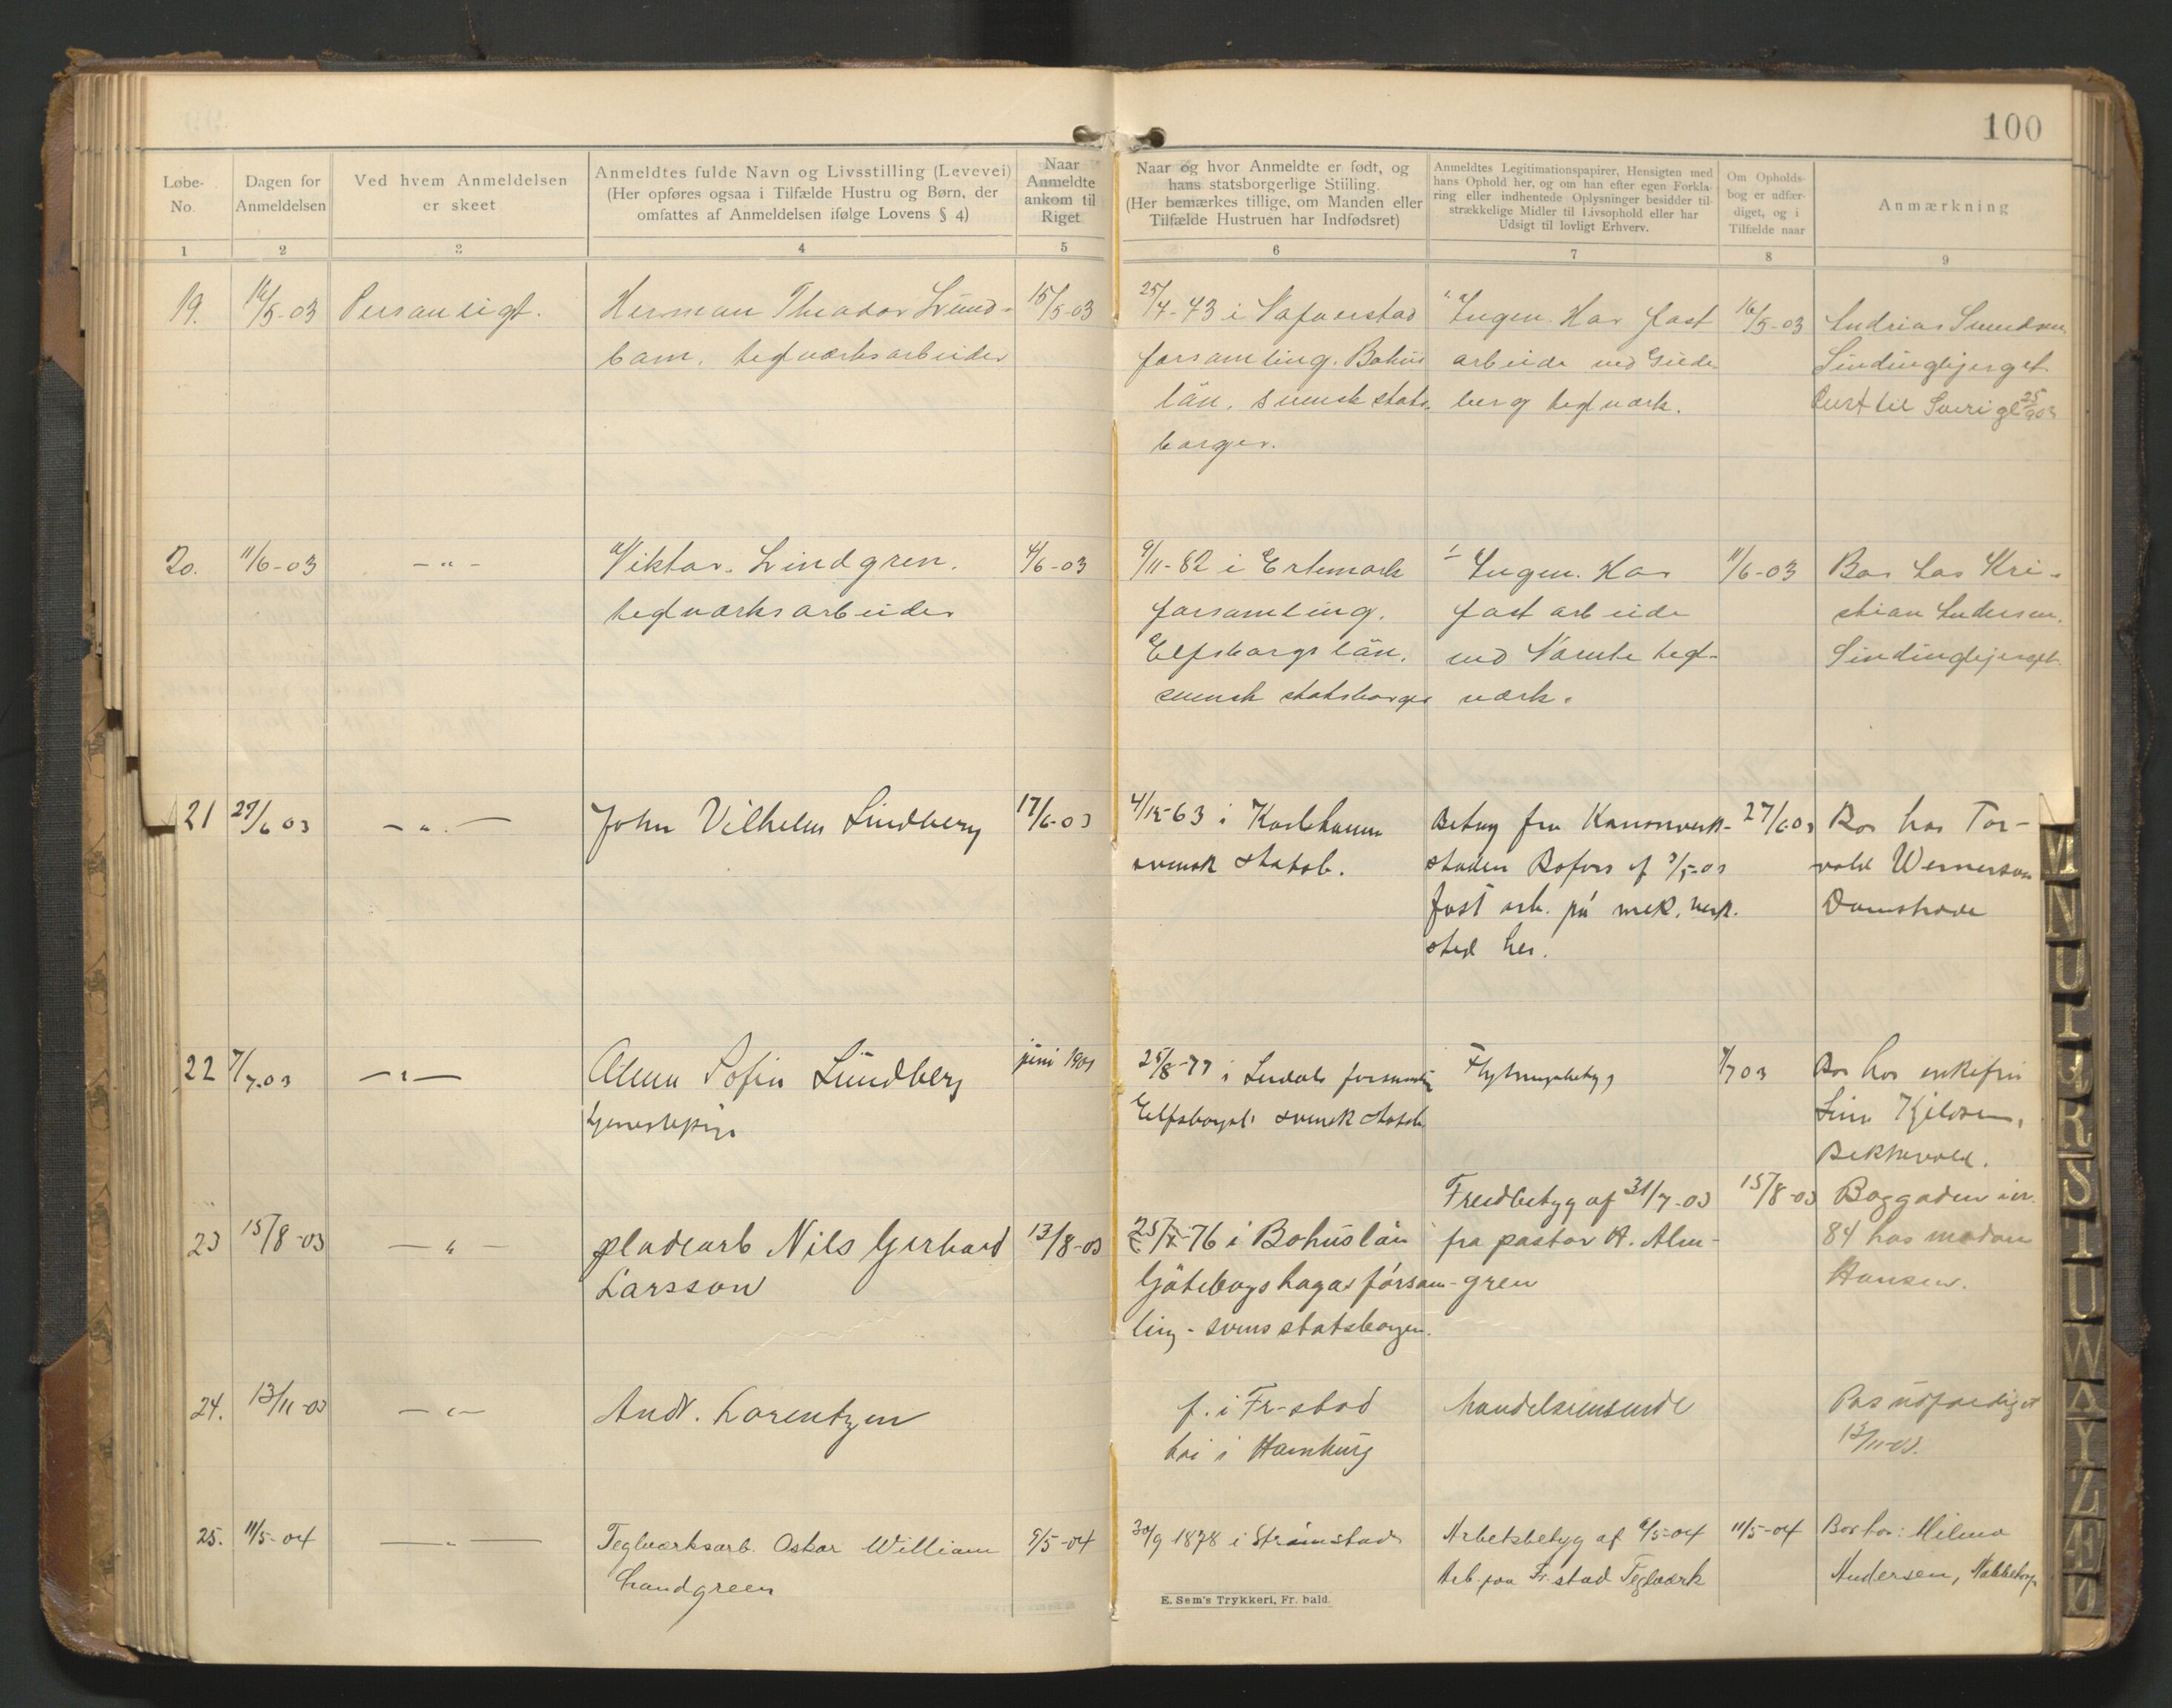 100
Løbe-
No.
Dagen for
Anmeldelsen
Ved hvem Anmeldelsen
er skeet
Anmeldtes fulde Navn og Livsstilling (Levevei)
(Her opføres ogsaa i Tilfælde Hustru og Børn, der
omfattes af Anmeldelsen ifølge Lovens § 4)
Naar
Anmeldte
ankom til
Riget
Naar og hvor Anmeldte er født, og
hans statsborgerlige Stilling.
(Her bemærkes tillige, om Manden eller
Tilfælde Hustruen har Indfødsret)
Anmeldtes Legitimationspapirer, Hensigten med
hans Ophold her, og om han efter egen Forkla-
ring eller indhentede Oplysninger besidder til-
strækkelige Midler til Livsophold eller har
Udsigt til lovligt Erhverv.
Om Opholds-
bog er udfær-
diget, og i
Tilfælde naar
Anmærkning
1 2 3 4 5 6 7 8 9
19. 16/5-03 Personligt. Herman Theodor Lund- 15/5-03 25/4-43 i Naverstad Ingen. Har fast 16/5-03
bom. teglværksarbeider forsamling. Bohus arbeide ved Gude- Lindingbjerget
län. svensk stats- berg teglværk. Reist til Sverige 25/9 03
borger.
20. 11/6-03 — " — Viktor Lindgren. 4/6-03 9/11-82 i Ertemark Ingen. Har 11/6-03 Bor hos Kri-
teglværksarbeider forsamling. fast arbeide stian Andersen.
Elfsborgs län. ved tegl- Lindingbjerget
svensk statsborger værk.
21 27/6 03 — " — John Vilhelm Lindberg 17/6-03 4/12-63 i Karlshamn Betyg fra Kanonverk- 27/6-03 Bor hos Tor-
svensk statsb. staden Bofors af /5-03 vald Wernerson
fast arb. på mek. verk- Damstrede
sted her.
22 7/7-03 — " — Alma Sofia Lundberg juni 1901 25/8-77 i Flytningsbetyg 7/7 03 Bor hos enkefru
tjenestepige Elfsborgsl. svensk statsb. Kjelsen,
23 15/8-03 — " — pladearb Nils Gerhard 13/8-03 25/-76 i Bohuslän Freidbetyg af 31/7-03 15/8-03 Baggaden
Larsson Göteborgs haga församl- fra pastor A. Alm- 84 hos madam
ling - svens statsborger. gren Hansen.
24. 13/11-03 — " — Andr. Lorentzen f. i Fr-stad handelsreisende Pas udfærdiget
i Hamburg 13/11-03.
25. 11/5-04 — " — Teglværksarb. Oskar William 9/5-04 30/9 1878 i Strömstad Arbetsbetyg af 6/5-04 11/5-04 Bor hos: Milma
Landgreen Arb. paa Fr.stad Teglværk Andersen, Nabbetorp
E. Sem's Trykkeri, Fr. hald.
M
N
S
U
W
Y
Z
Æ
Ø